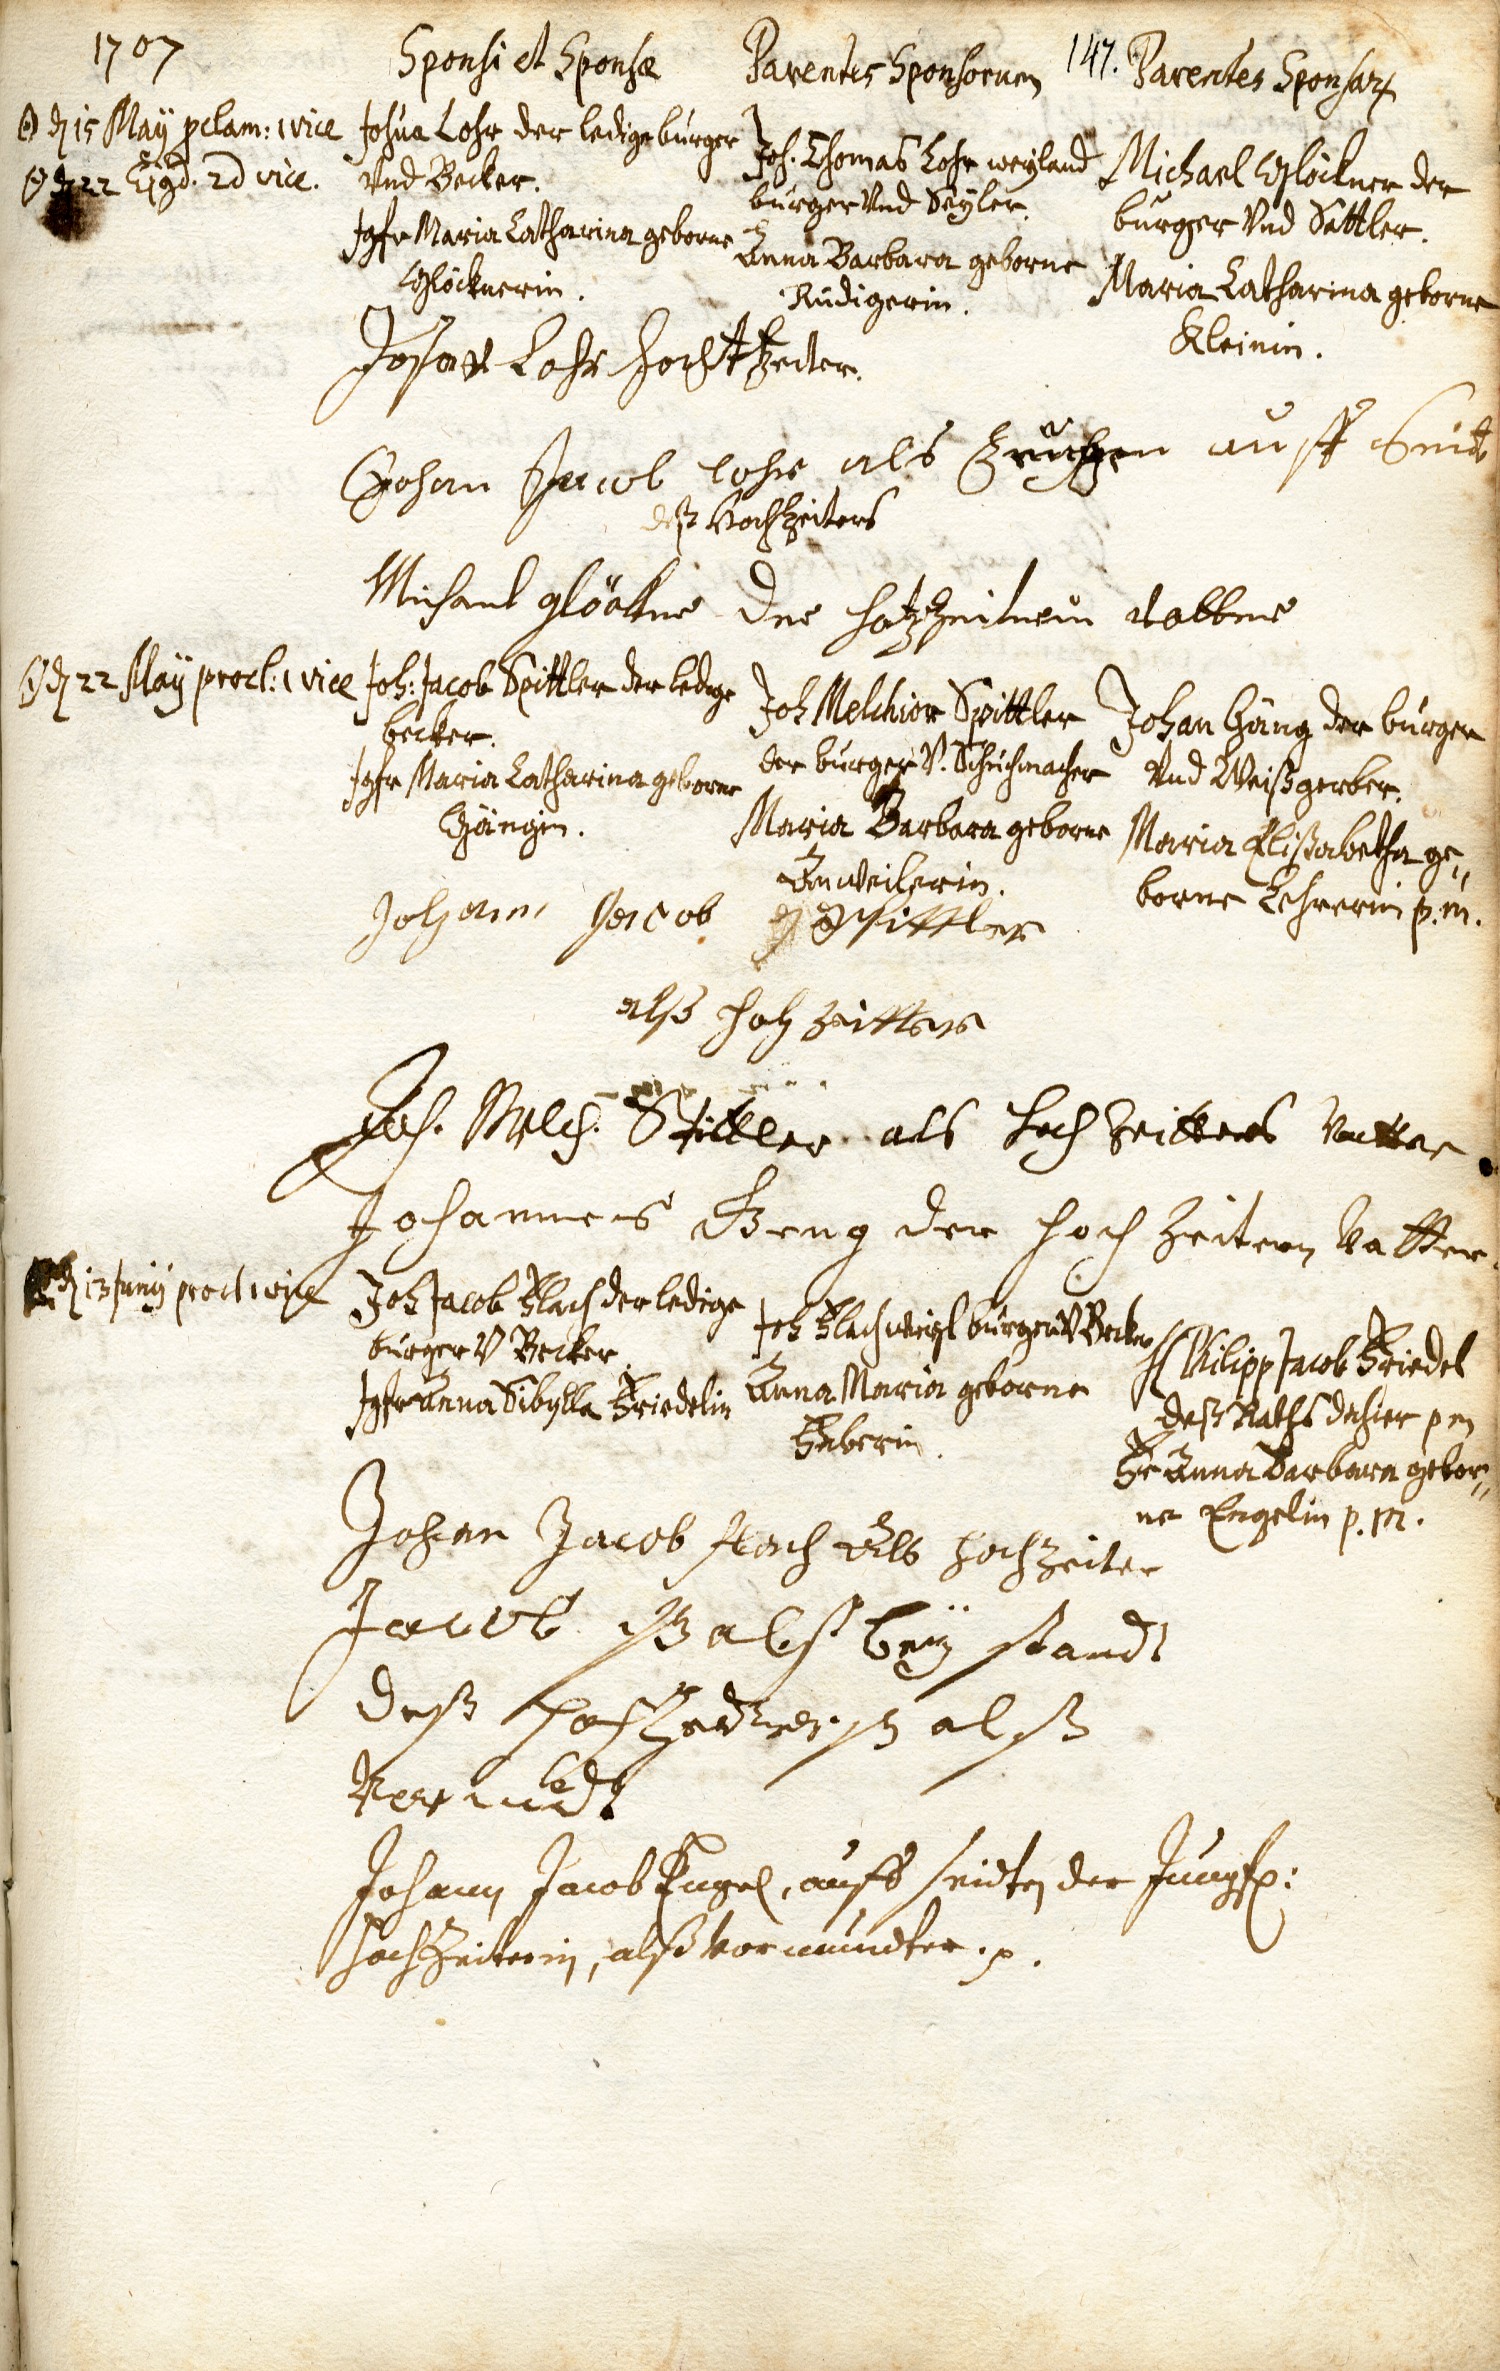 1707
Sponsi et Sponsæ
Parentes Sponsorum
147.
Parentes Sponsar
15 May pclam: 1 vice
22 Ejsd. 2d vice.
Josua Lohr der ledige burger
Vnd Becker.
Jgfr Maria Catharina geborne
Glöcknerin.
Joh. Thomas Lohr weyland
burger Vnd Seyler.
Anna Barbara geborne
Rüdigerin.
Michael Glöckner der
burger Vnd Sattler.
Maria Catharina geborne
Kleinin.
Josua Lohr hochtzeiter.
Johan Jacob lohr als Zeuchen auff Seit
deß Hochzeiters
Michael glöckner der hotzzeitern vatter
22 May procl: 1 vice
Joh: Jacob Spittler der ledige
becker.
Jgfr Maria Catharina geborne
Gängin.
Joh Melchior Spittler
der burger V. Schuhmacher
Maria Barbara geborne
Anweilerin.
Johan Gäng der burger
Vnd Weißgerber.
Maria Elisabetha ge„
borne Lehrerin p.m.
Johann Jacob Spittler
alß hoh zeitter
Joh. Melch. Spittler als Hochzeitters Vatter
Johannes Geng der hoch zeitern Vatter.
13 Junij procl 1 vice
Joh Jacob Flach der ledige
burger V Becker.
Jgfr Anna Sibylla Friedelin
Joh Flach weyl burger V Becker
Anna Maria geborne
Faberin.
H Philipp Jacob Friedel
deß Raths dahier pm
Fr Anna Barbara gebor„
ne Engelin p.m.
Johan Jacob flach Als Hochzeiter
Jacob alß beij standt
deß hochzeiterß alß
Johann Jacob Engel, auff seiten der Jungfr:
Hochzeiterin, alß Vormundter.